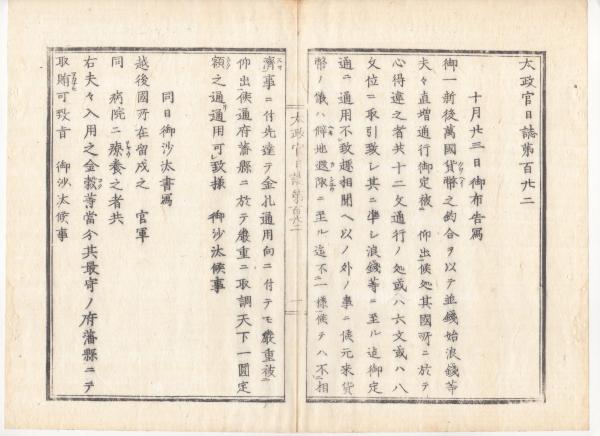 太政官日誌第百廿二
十月廿三日御布告寫
御一新後萬國貨幣之釣合ヲ以テ並錢始浪錢等
夫々直増通行御定被 仰出候処其國所ニ於テ
心得違之者共十二文通行ノ処或ハ六文或ハ八
文位ニ取引致シ其ニ準シ浪錢等ニ至ル迠御定
通ニ通用不致趣相聞ヘ以ノ外ノ事ニ候元来貨
幣ノ儀ハ僻地遐陬ニ至ル迠不一様候テハ不相
太政官日誌第百廿二
一
濟事ニ付先達テ金札通用向ニ付テモ嚴重被
仰出候通府藩縣ニ於テ嚴重ニ取調天下一圓定
額之通通用可致様 御沙汰候事
同日御沙汰書寫
越後國所在留戍之 官軍
同 病院ニ療養之者共
右夫々入用之金穀等當分其最寄ノ府藩縣ニテ
取賄可致旨 御沙汰候事